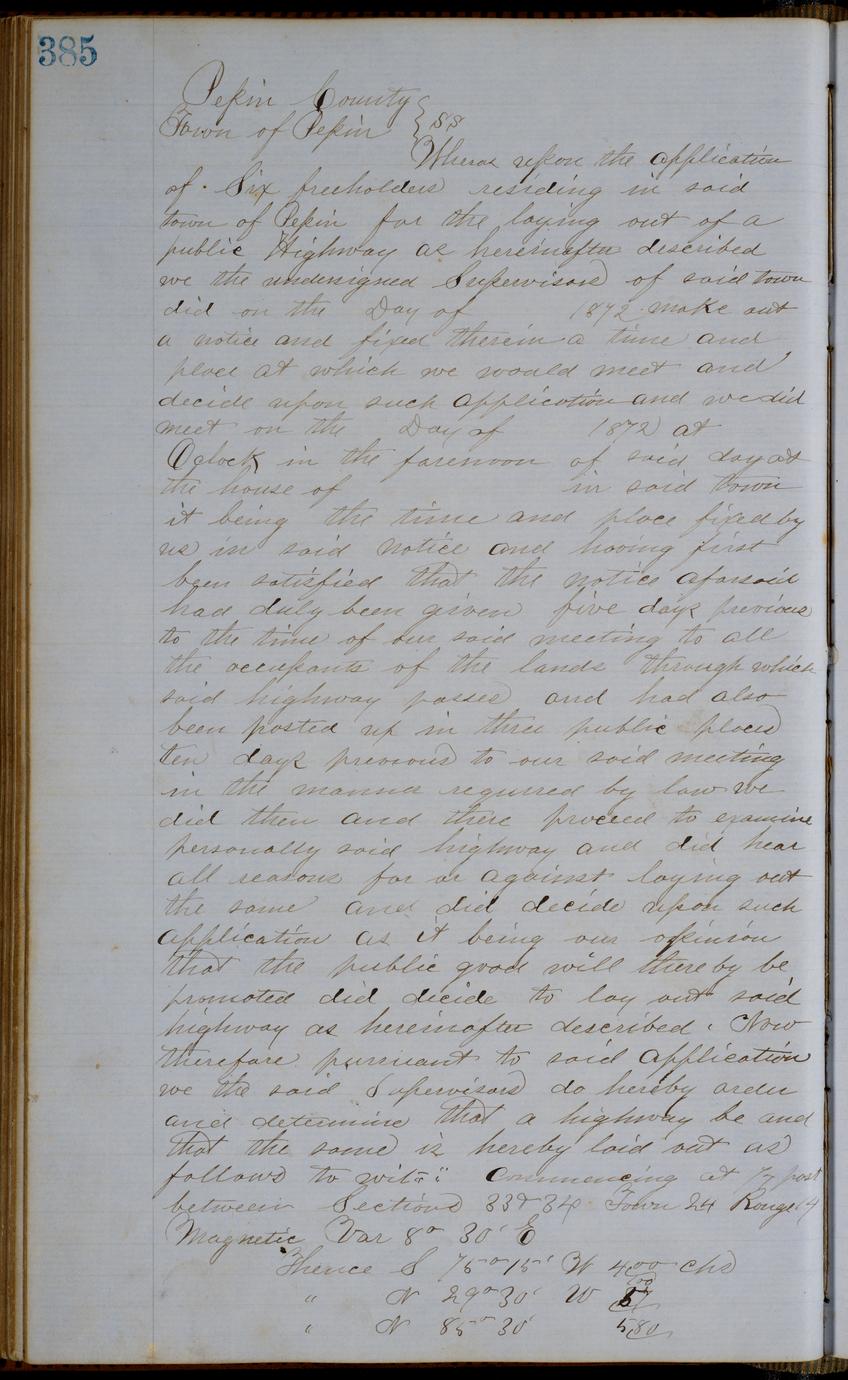 385
Pepin County
Town of Pepin } SS
Wheras upon the application
of Six freeholders residing in said
town of Pepin for the laying out of a
public Highway as hereinafter described
we the undersigned Supervisors of said town
did on the Day of 1872 make out
a notice and fixed therein a time and
place at which we would meet and
decide upon such application and we did
meet on the Day of 1872 at
Oclock in the forenoon of said day at
the house of in said town
it being the time and place fixed by
us in said notice and having first
been satisfied that the notice aforsaid
had duly been given five days previous
to the time of our said meeting to all
the occupants of the lands through which
said highway passes and had also
been posted up in three public places
ten days previous to our said meeting
in the manner requrred by law we
did then and there proceed to examine
personally said highway and did hear
all reasons for or against laying out
the same and did decide upon such
application as it being our opinion
that the public good will thereby be
promoted did decide to lay out said
highway as hereinafter described. Now
therefore pursuant to said application
we the said Supervisors do hereby order
and determine that a highway be and
that the same is hereby laid out as
follows to wit:": Commencing at post
between Sections 33 & 34 Town 24 Range 14
Magnetic Var 8° 30' E
Thence S 75° 15' W 4.00 chs
" N 29° 30' W
" N 85° 30' 5.80